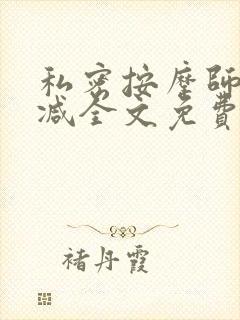 私密按摩師
减全文免費
褚丹霞